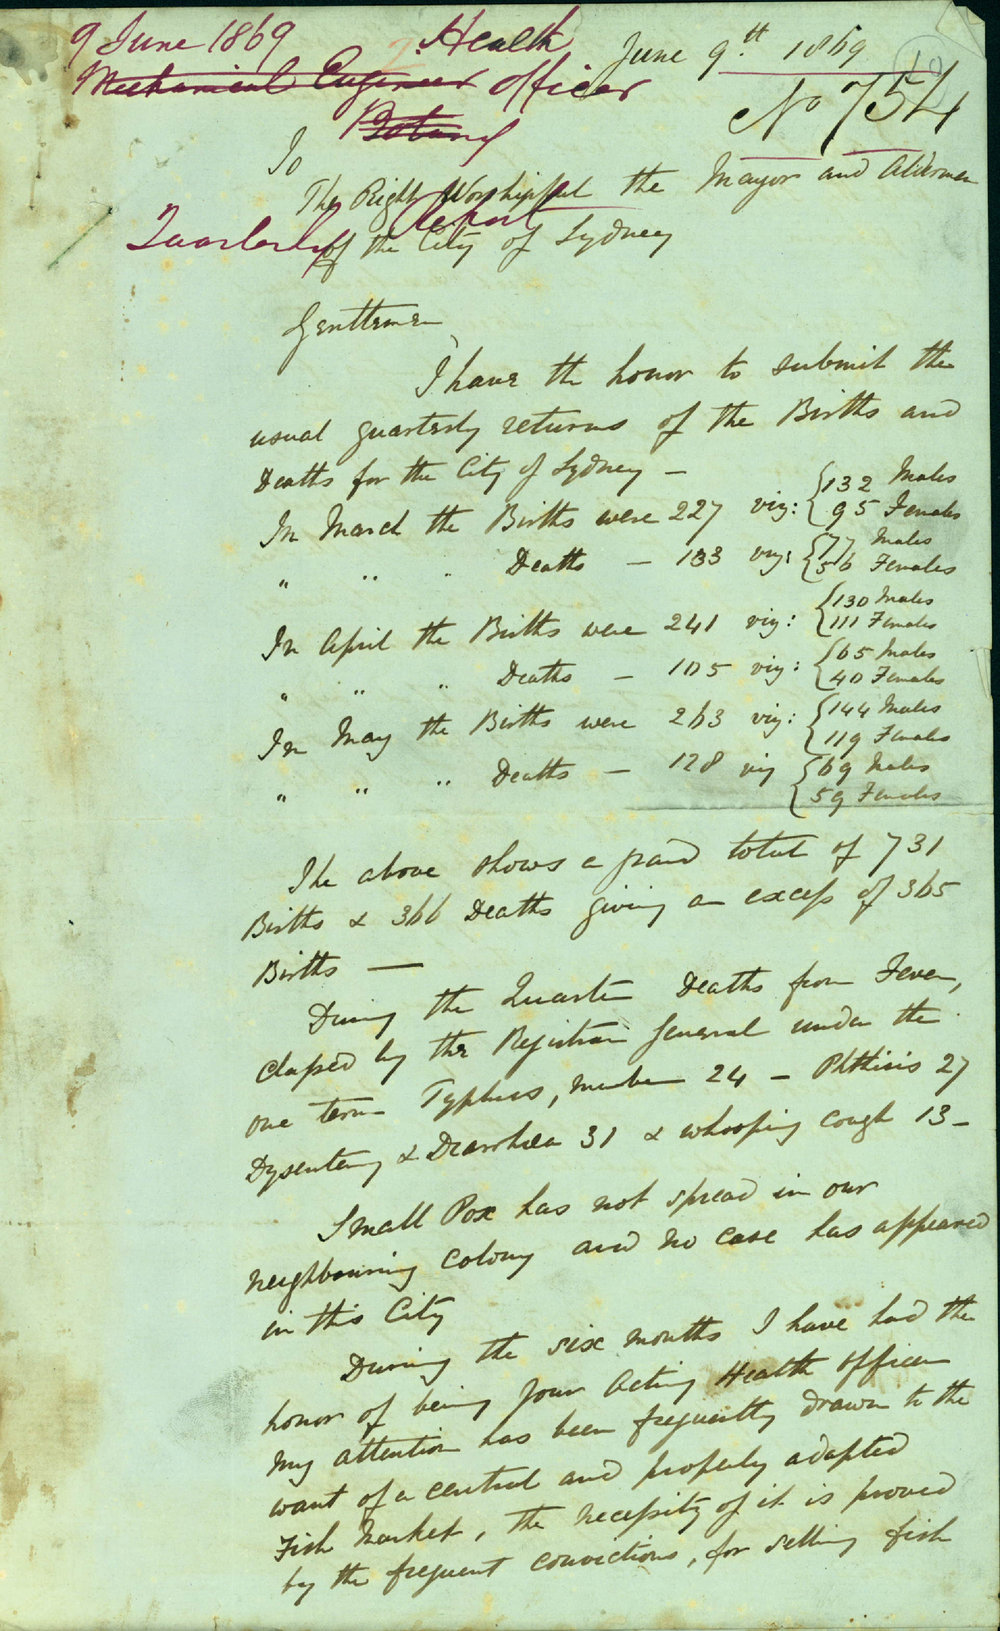 9 June 1869 Health June 9th 1869 10
Mechanical Engineer Officer
No 754
To
The Right Worshipful the Mayor and Aldermen
Quarterly Report
of the City of Sydney
Gentlemen,
I have the honor to submit the
usual quarterly returns of the Births and
Deaths for the City of Sydney —
In March the Births were 227 viz: {132 Males
95 Females
" " " Deaths — 133 viz: {77 Males
56 Females
In April the Births were 241 viz: {130 Males
111 Females
" " " Deaths — 105 viz: {65 Males
40 Females
In May the Births were 263 viz: {144 Males
119 Females
" " " Deaths — 128 viz {69 Males
59 Females
The above shows a grand total of 731
Births & 366 Deaths giving an excess of 365
Births —
During the Quarter Deaths from Fever,
classed by the Registrar General under the
one term Typhus, number 24 — Phthisis 27
Dysentery & Diarrhœa 31 & whooping cough 13 —
Small Pox has not spread in our
neighbouring colony and no case has appeared
in this City
During the six months I have had the
honor of being your Acting Health Officer
my attention has been frequently drawn to the
want of a central and properly adapted
Fish Market, the necessity of it is proved
by the frequent convictions, for selling fish